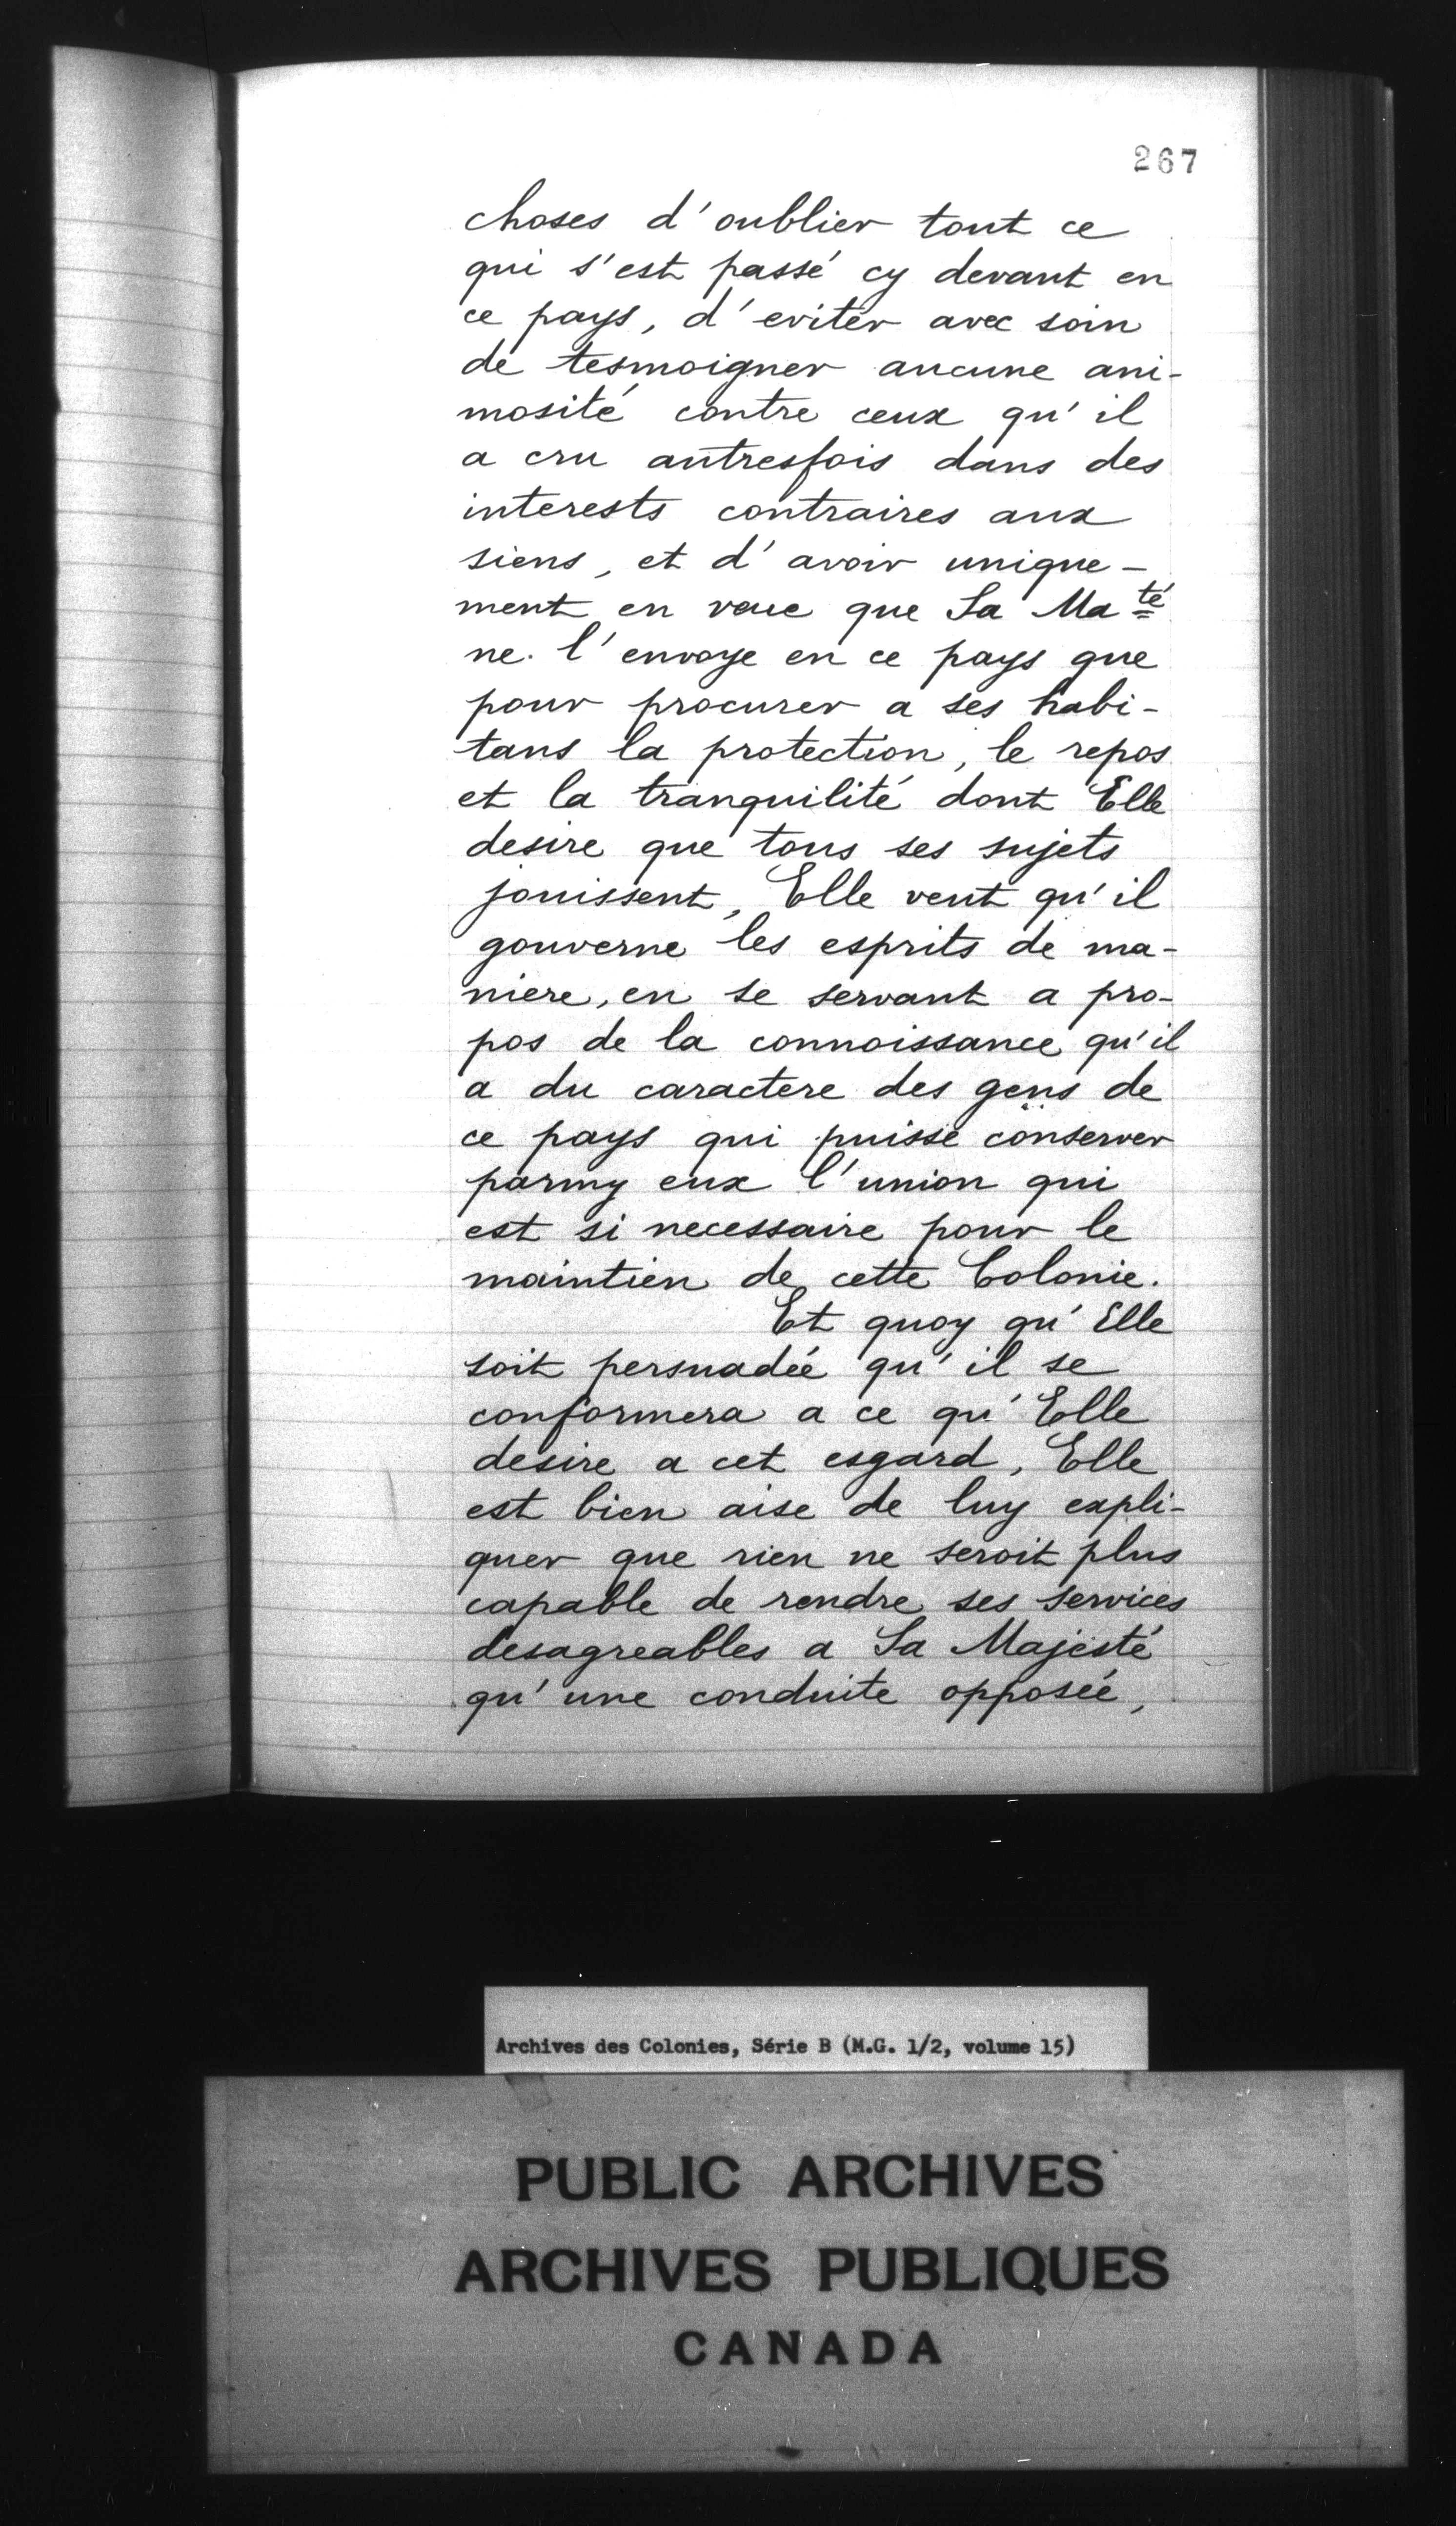 267
choses d'oublier tout ce
qui s'est passé cy devant en
ce pays, d'eviter avec soin
de tesmoigner aucune ani-
mosité contre ceux qu'il
a cru autresfois dans des
interests contraires aux
siens, et d'avoir unique-
ment en veue que Sa Ma té
ne l'envoye en ce pays que
pour procurer a ses habi-
tans la protection, le repos
et la tranquilité dont Elle
desire que tous ses sujets
jouissent, Elle veut qu'il
gouverne les esprits de ma-
niere, en se servant a pro-
pos de la connoissance qu'il
a du caractere des gens de
ce pays qui puisse conserver
parmy eux l'union qui
est si necessaire pour le
maintien de cette Colonie.
Et quoy qu'Elle
soit persuadée qu'il se
conformera a ce qu'Elle
desire a cet esgard, Elle
est bien aise de luy expli-
quer que rien ne seroit plus
capable de rendre ses services
desagreables a Sa Majesté
qu'une conduite opposée,
Archives des Colonies, Série B (M.G. 1/2, volume 15)
PUBLIC ARCHIVES
ARCHIVES PUBLIQUES
CANADA